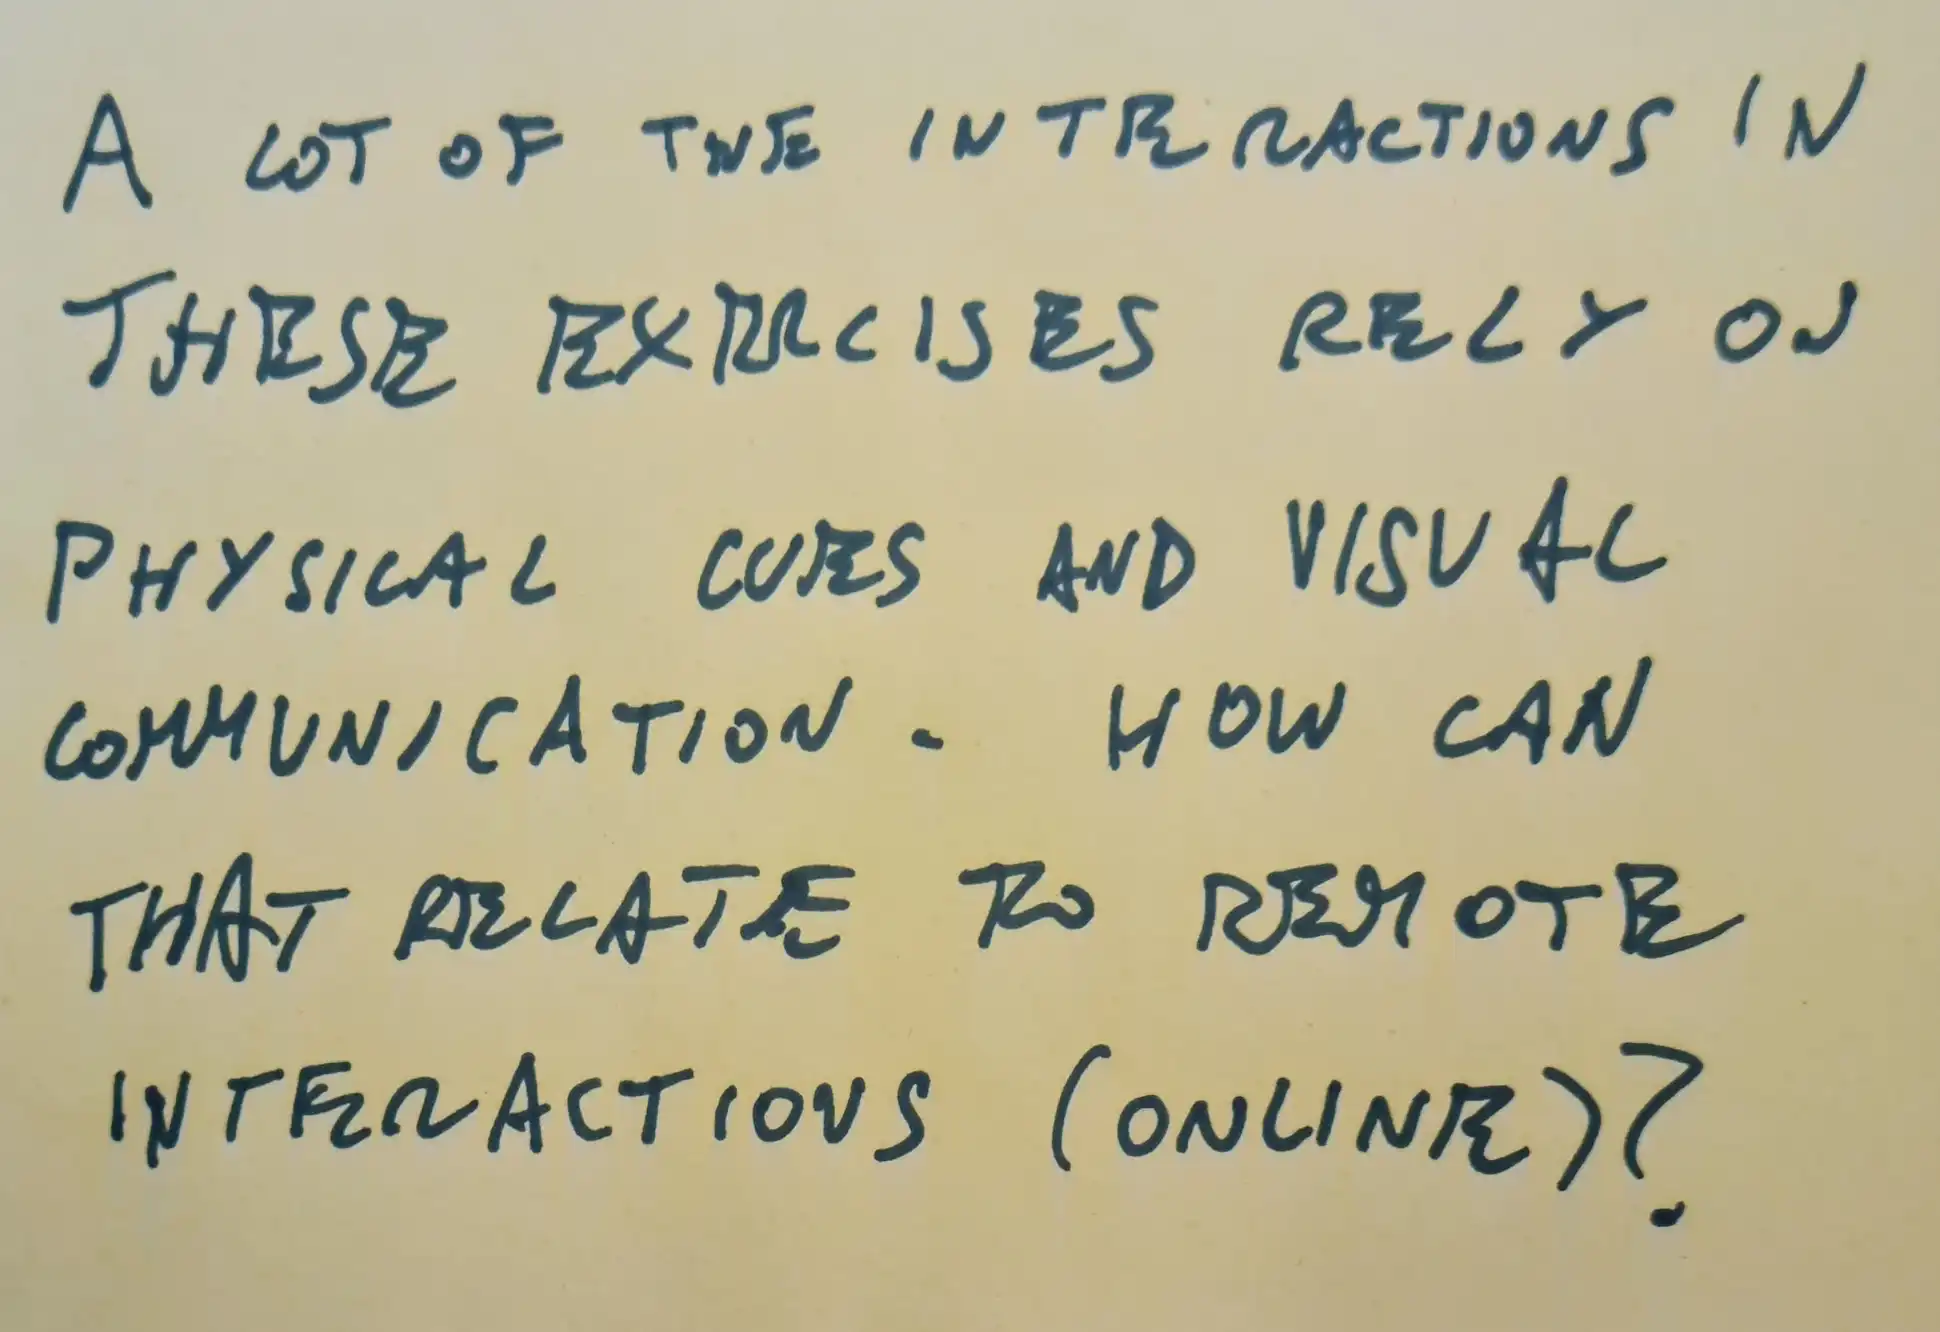 A LOT OF THE INTERACTIONS IN
THESE EXERCISES RELY ON
PHYSICAL CUES AND VISUAL
COMMUNICATION. HOW CAN
THAT RELATE TO REMOTE
INTERACTIONS (ONLINE)?